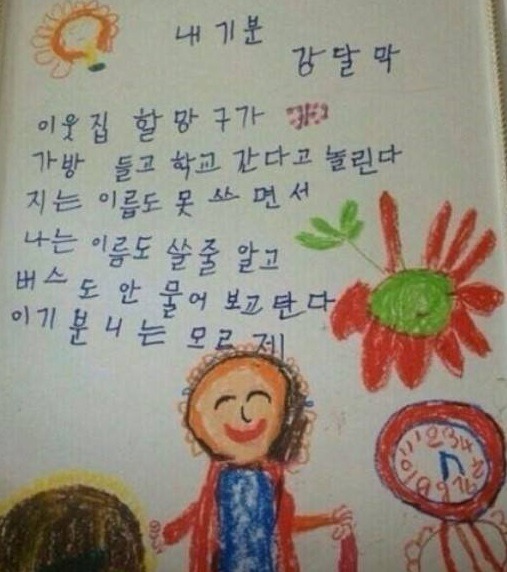 내 기분
강달막
이웃집 할망구가
가방 들고 학교 간다고 놀린다
지는 이름도 못 쓰면서
나는 이름도 쓸줄 알고
버스도 안 물어보고 탄다
이기분 니는 모르제